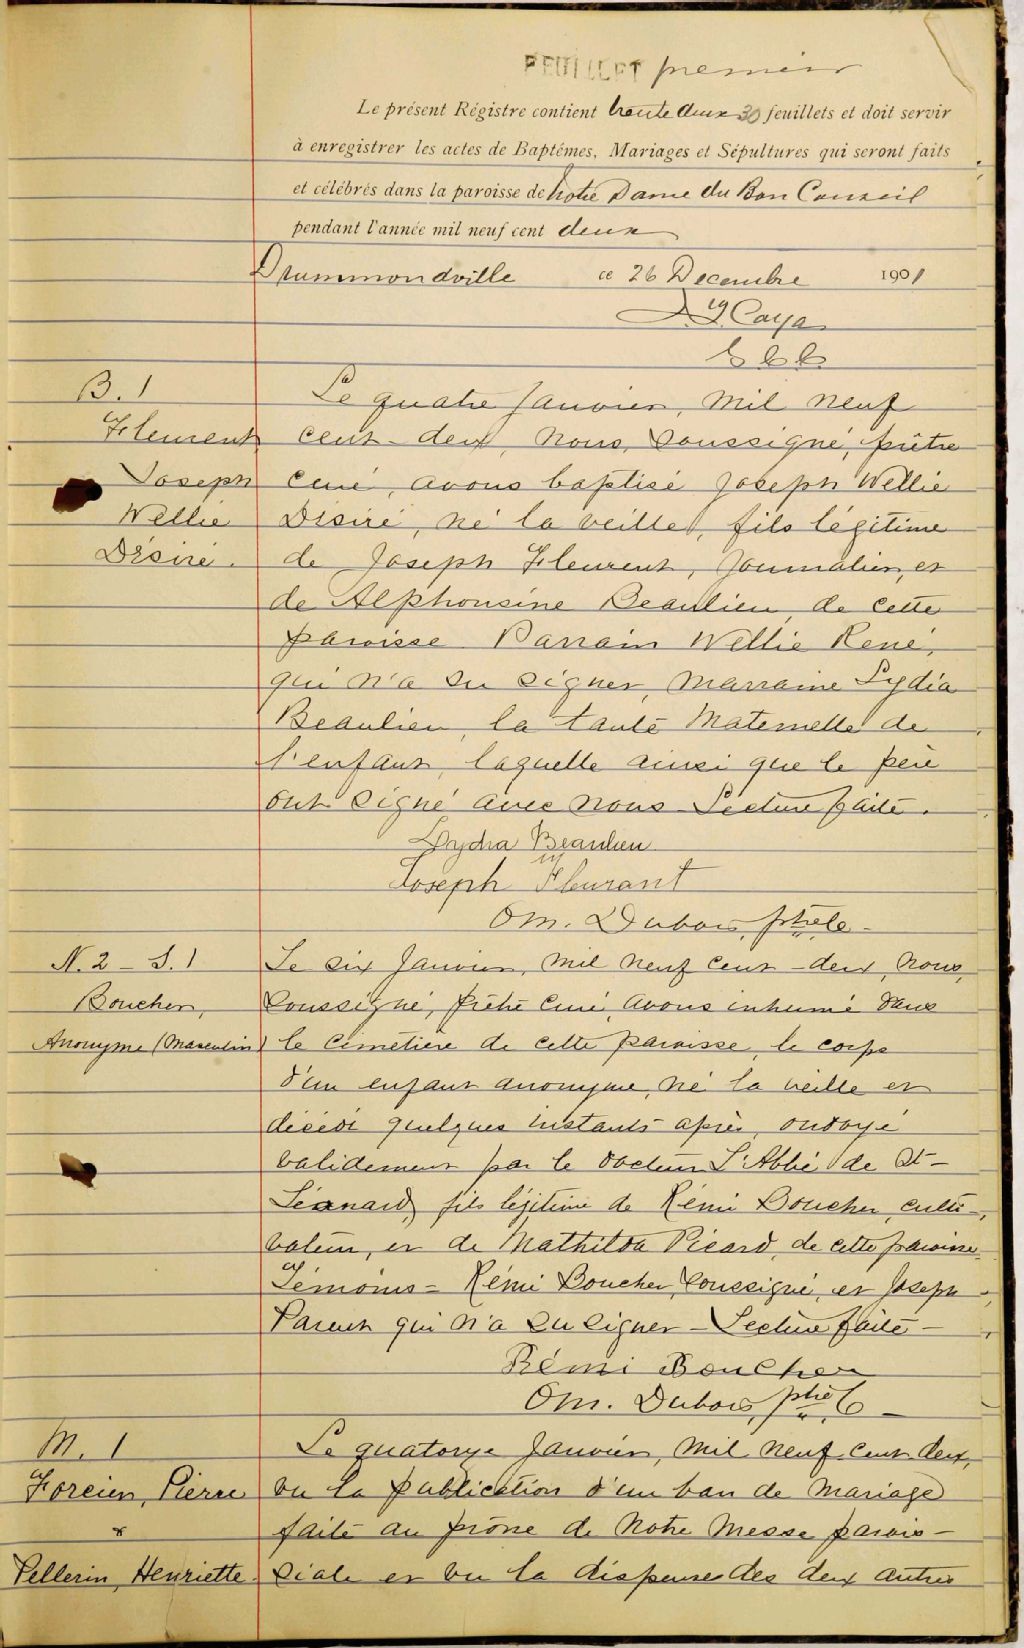 FEUILLET premier
Le présent Régistre contient trente deux 30 feuillets et doit servir
à enregistrer les actes de Baptêmes, Mariages et Sépultures qui seront faits
et célébrés dans la paroisse de Notre Dame du Bon Conseil
pendant l'année mil neuf cent deux
Drummondville ce 26 Decembre 1901
Caya
B. 1
Le quatre Janvier, mil neuf
Fleurent
cent-deux, nous, soussigné, prêtre
Joseph
curé, avons baptisé Joseph Wellie
Wellie
Désiré, né la veille, fils légitime
Désiré.
de Joseph Fleurent, journalier, et
de Alphonsine Beaulieu, de cette
paroisse. Parrain Wellie René,
qui n'a su signer, marraine Lydia
Beaulieu, la tante maternelle de
l'enfant, laquelle ainsi que le père
ont signé avec nous. Lecture faite.
Lydia Beaulieu
Joseph Fleurant
Om. Dubois, ptre c.
N. 2 - S. 1
Le six Janvier, mil neuf cent-deux, nous,
Boucher,
soussigné, prêtre curé, avons inhumé dans
Anonyme (Masculin)
le cimetière de cette paroisse, le corps
d'un enfant anonyme, né la veille et
décédé quelques instants après, ondoyé
validement par le docteur L'Abbé de St-
Léonard, fils légitime de Rémi Boucher, culti-
vateur, et de Mathilda Picard, de cette paroisse.
Témoins = Rémi Boucher, soussigné, et Joseph
Parent qui n'a su signer - Lecture faite -
Rémi Boucher
Om. Dubois, ptre C -
M. 1
Le quatorze Janvier, mil neuf-cent-deux,
Forcier, Pierre
vu la publication d'un ban de mariage
&
faite au prône de notre messe parois-
Pellerin, Henriette
siale et vu la dispense des deux autres